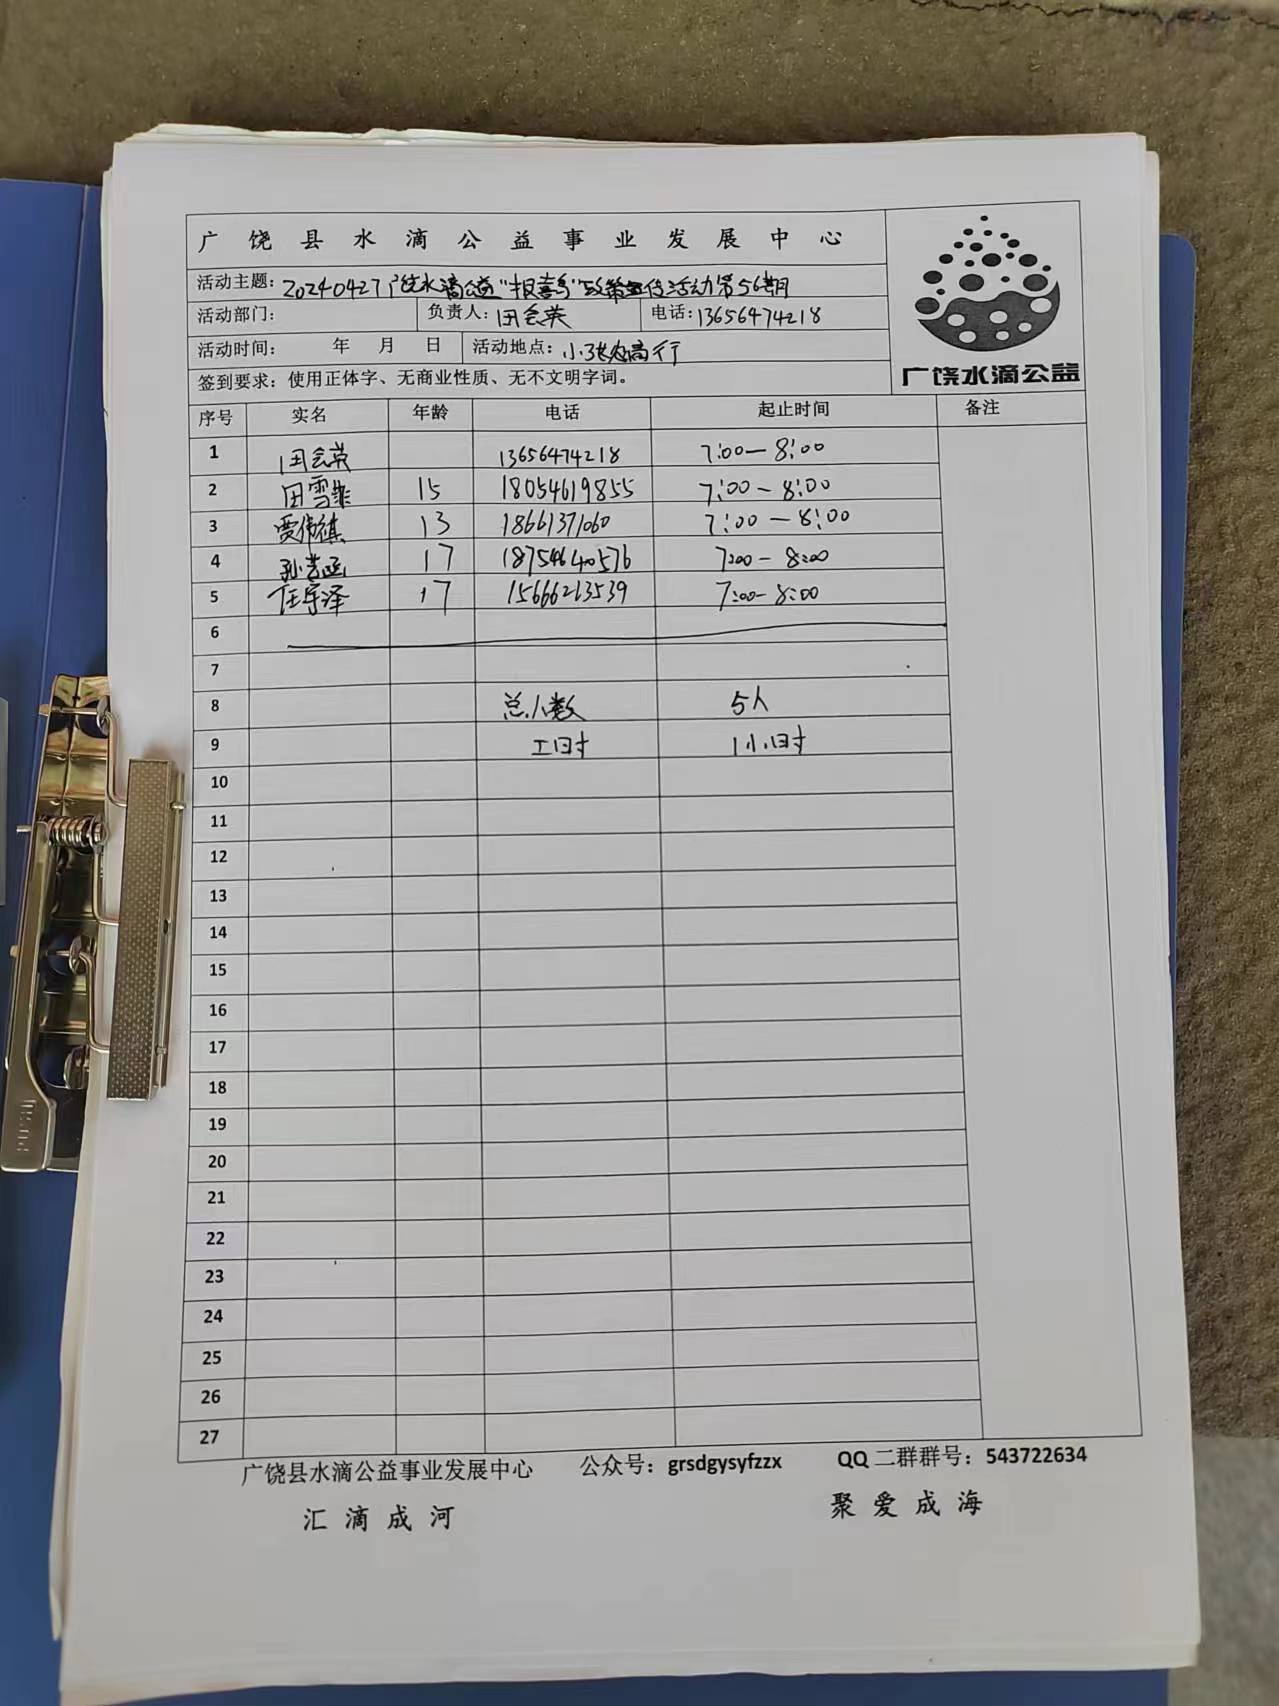 广饶县水滴公益事业发展中心
活动主题：20240427广饶水滴公益“报喜鸟”政策宣传活动第56期
活动部门： 负责人：田会英 电话：13656474218
活动时间： 年 月 日 活动地点：小张农商行
签到要求：使用正体字、无商业性质、无不文明字词。
广饶水滴公益
序号 实名 年龄 电话 起止时间 备注
1 田会英 13656474218 7:00-8:00
2 田雪菲 15 18054619855 7:00-8:00
3 贾伟祺 13 18661371060 7:00-8:00
4 孙艺函 17 18754640576 7:00-8:00
5 任宇泽 17 15666263539 7:00-8:00
6
7
8 总人数 5人
9 工时 1小时
10
11
12
13
14
15
16
17
18
19
20
21
22
23
24
25
26
27
广饶县水滴公益事业发展中心 公众号：grsdgysyfzzx QQ二群群号：543722634
汇滴成河 聚爱成海